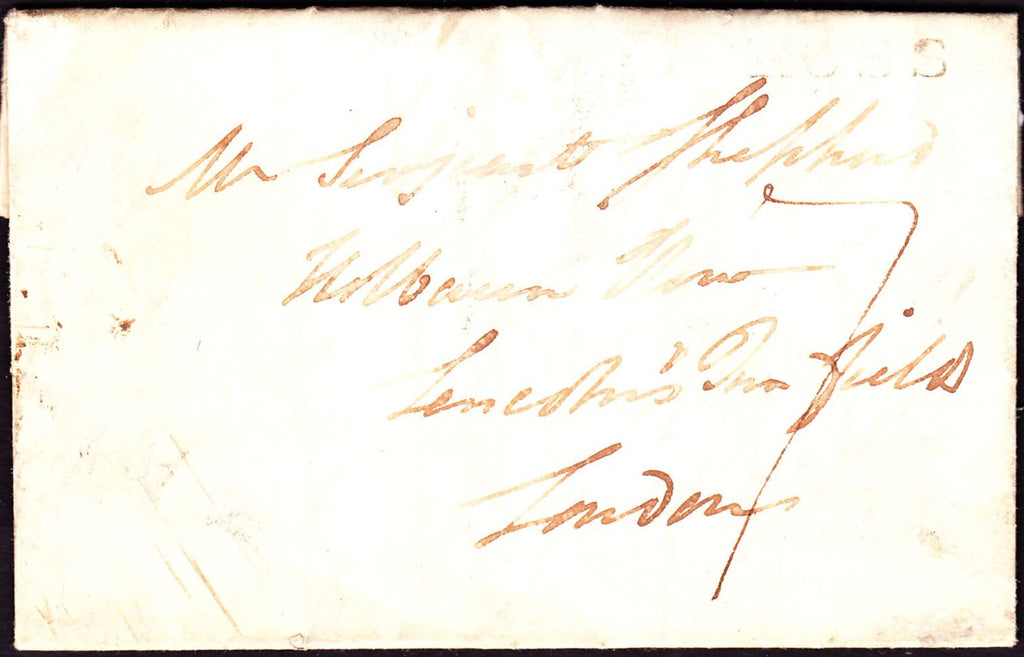 Mr Serjeant Shepherd
Holbourn Row
Lincoln's Inn fields
London
7